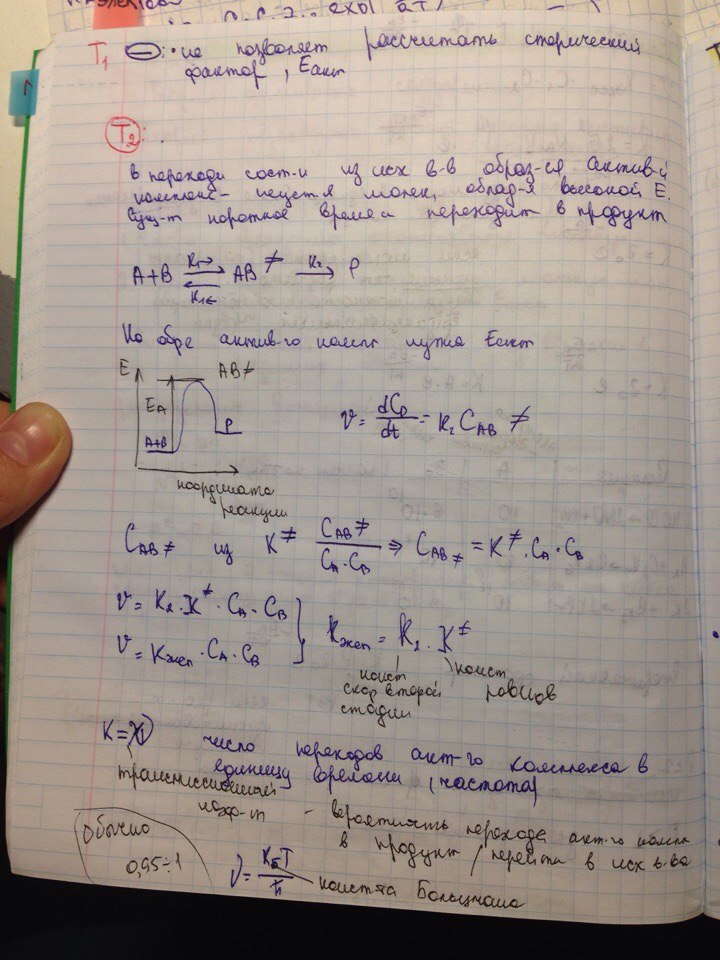 T₁ ⊖: • не позволяет рассчитать стерический
фактор, Eакт
T₂:
в переходн сост-и из исх в-в образ-ся актив-й
комплекс - неуст-я молек, облад-я высокой E.
Сущ-т короткое время и переходит в продукт
A+B ⇄ AB≠ → P
K₁→ K₂
K₁←
На обр-е актив-го компл нужна Eакт
E AB≠
EA
A+B P
координата
реакции
v = dCp/dt = K₂ C AB≠
C AB≠ из K≠ C AB≠ / CA·CB ⇒ C AB≠ = K≠·CA·CB
v = K₂·K≠·CA·CB
v = Kэксп·CA·CB
Kэксп = K₂·K≠
конст
скор второй
стадии
конст
равнов
число переходов акт-го комплекса в
единицу времени (частота)
трансмиссионный
коэф-т
- вероятность перехода акт-го компл
в продукт / перейти в исх в-ва
Обычно
0,95÷1
ν = KБT/h
конст-та Больцмана